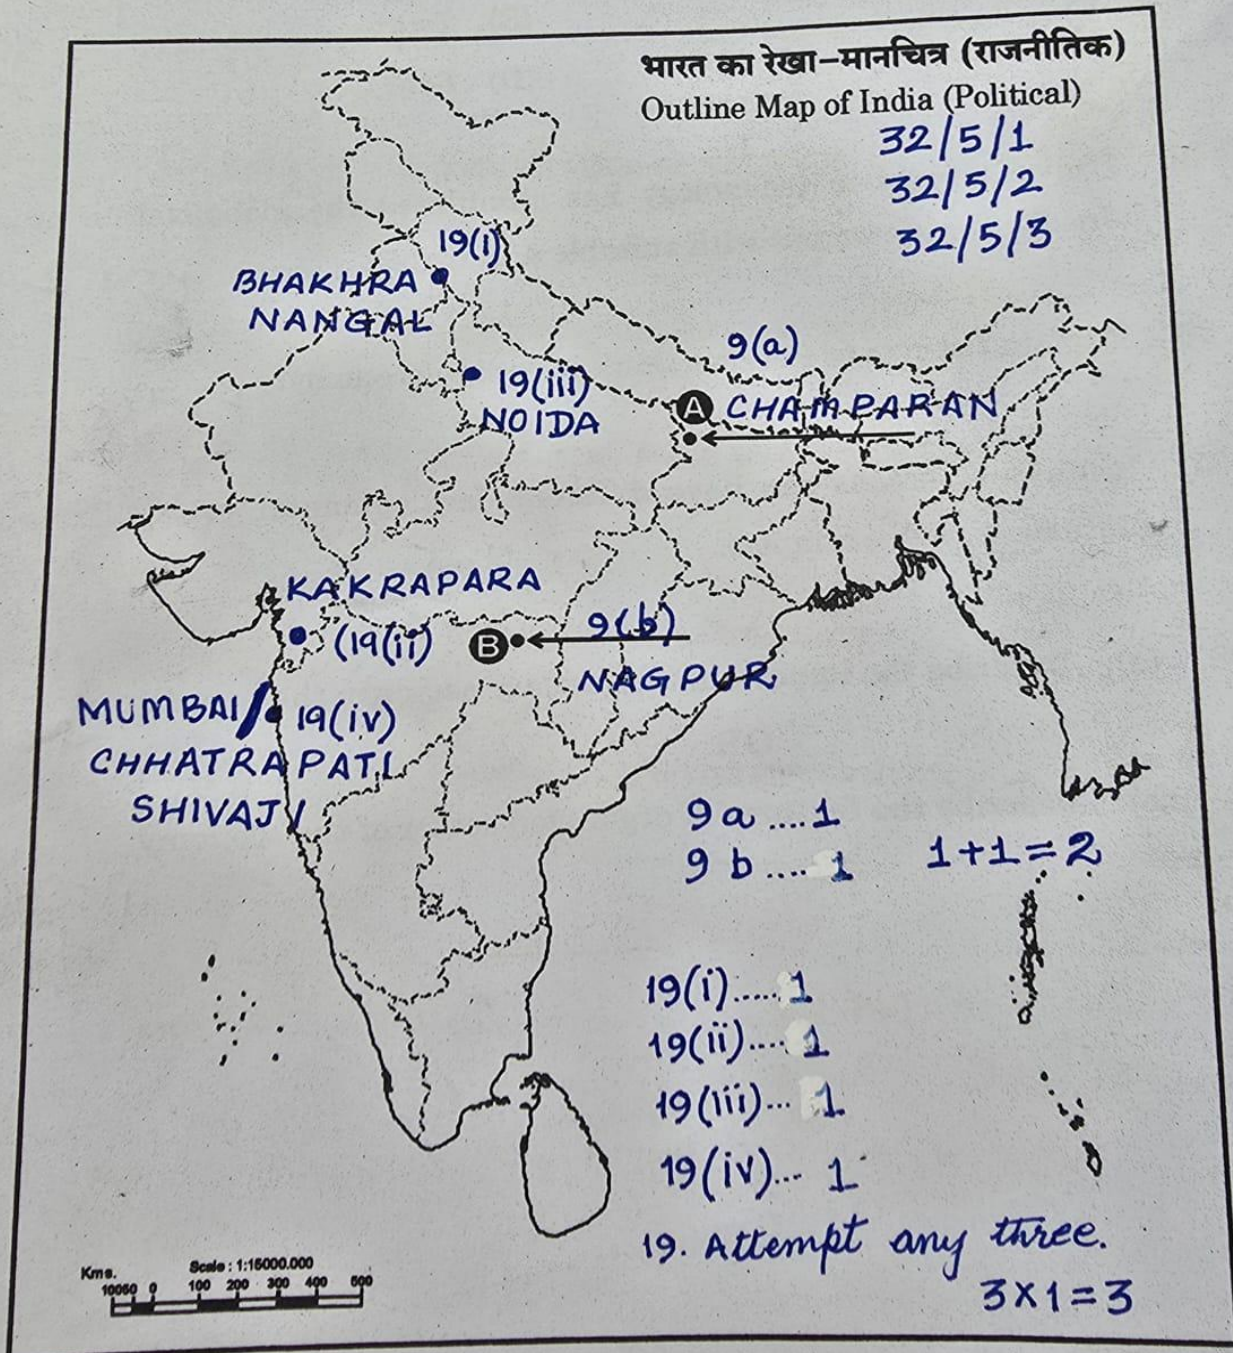 भारत का रेखा–मानचित्र (राजनीतिक)
Outline Map of India (Political)
32/5/1
32/5/2
32/5/3
19(i)
BHAKHRA
NANGAL
9(a)
19(iii)
NOIDA
A CHAMPARAN
KAKRAPARA
(19(ii)
B 9(b)
NAGPUR
MUMBAI/ 19(iv)
CHHATRAPATI
SHIVAJI
9a ....1
9 b .... 1
1+1=2
19(i)..... 1
19(ii).... 1
19(iii)... 1
19(iv)... 1
19. Attempt any three.
3x1=3
Kms.
Scale : 1:15000.000
10050 0 100 200 300 400 500